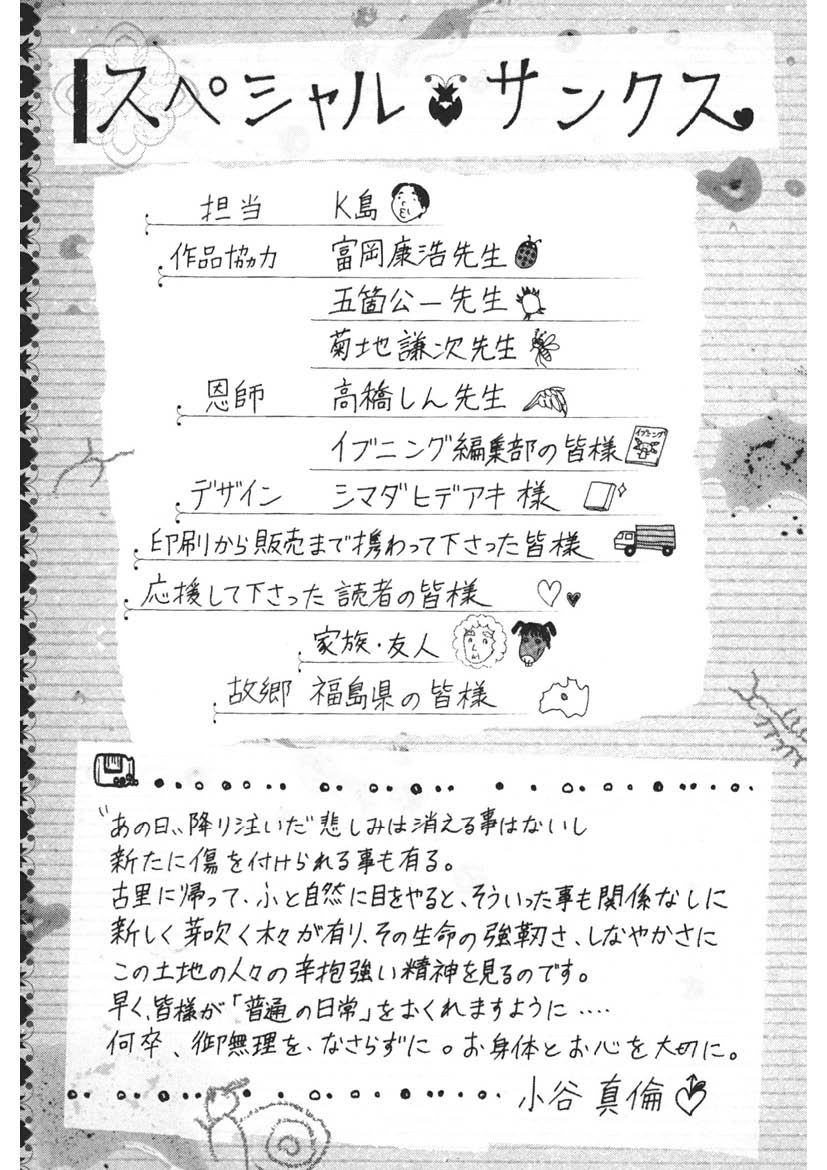 スペシャル サンクス
担当 K島
作品協力 富岡康浩先生
五箇公一先生
菊地謙次先生
恩師 高橋しん先生
イブニング編集部の皆様
イブニング
デザイン シマダヒデアキ様
印刷から販売まで携わって下さった皆様
応援して下さった読者の皆様
家族・友人
故郷 福島県の皆様
"あの日"、降り注いだ悲しみは消える事はないし
新たに傷を付けられる事も有る。
古里に帰って、ふと自然に目をやると、そういった事も関係なしに
新しく芽吹く木々が有り、その生命の強靭さ、しなやかさに
この土地の人々の辛抱強い精神を見るのです。
早く、皆様が「普通の日常」をおくれますように‥‥
何卒、御無理を、なさらずに。お身体とお心を大切に。
小谷真倫